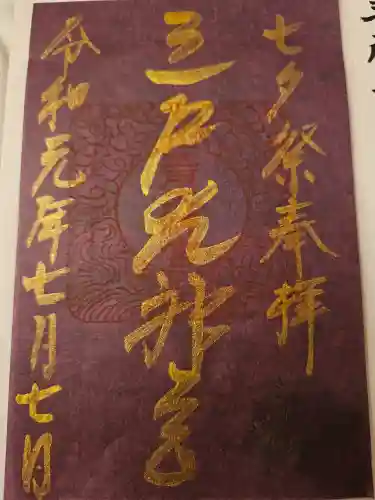 七夕祭奉拝
三 神宮
令和元年七月七日